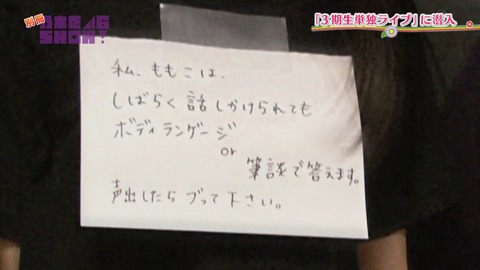 別冊
乃木坂46
SHOW!
「3期生単独ライブ」に潜入
私、ももこは、
しばらく話しかけられても
ボディランゲージ
or
筆談で答えます。
声出したらブって下さい。